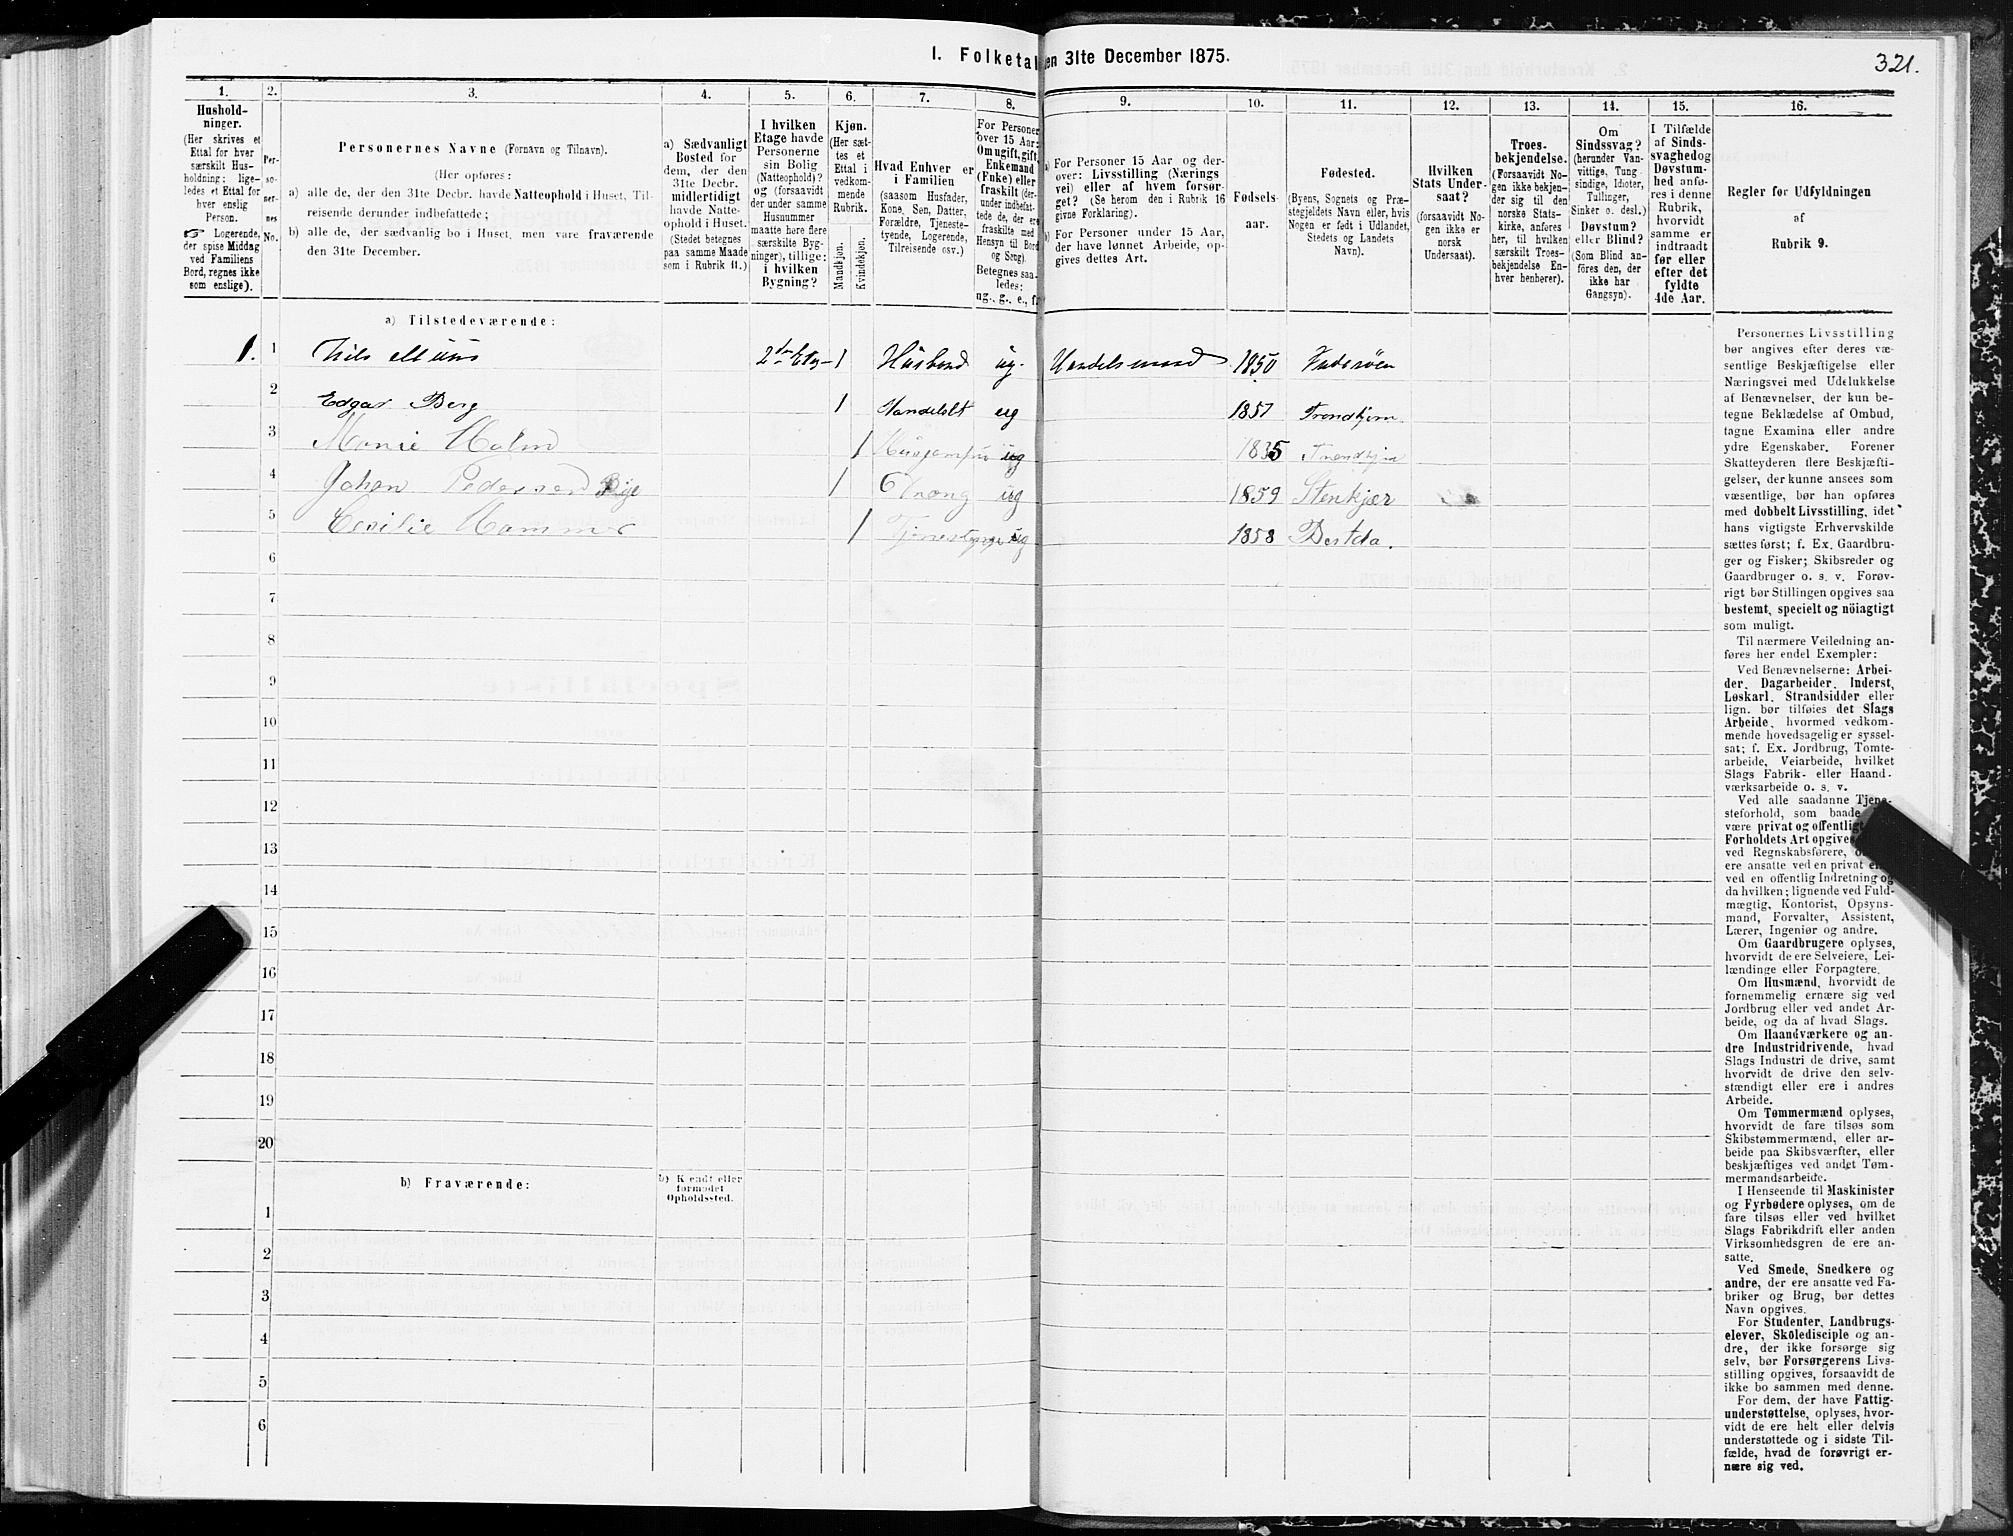 I. Folketal den 31te December 1875.
321.
1.
2.
3.
4.
5.
6.
7.
8.
9.
10.
11.
12.
13.
14.
15.
16.
Hushold-
ninger.
(Her skrives et
Ettal for hver
særskilt Hus-
holdning; lige-
ledes et Ettal for
hver enslig
Person.
☞ Logerende,
der spise Middag
ved Familiens
Bord, regnes ikke
som enslige).
Per-
so-
ner-
nes
No.
Personernes Navne (Fornavn og Tilnavn).
(Her opføres:
a) alle de, der den 31te Decbr. havde Natteophold i Huset, Til-
reisende derunder indbefattede;
b) alle de, der sædvanlig bo i Huset, men vare fraværende
den 31te December.
a) Sædvanligt
Bosted for
dem, der den
31te Decbr.
midlertidigt
havde Natte-
ophold i Huset.
(Stedet betegnes
paa samme Maade
som i Rubrik 11.)
I hvilken
Etage havde
Personerne
sin Bolig
(Natteophold)?
og (forsaavidt
der under samme
Husnummer
maatte høre flere
særskilte Byg-
ninger), tillige:
i hvilken
Bygning?
Kjøn.
(Her sæt-
tes et
Ettal i
vedkom-
mende
Rubrik.
Mandkjøn.
Kvindekjøn.
Hvad Enhver er
i Familien
(saasom Husfader,
Kone, Søn, Datter,
Forældre, Tjeneste-
tyende, Logerende,
Tilreisende osv.)
For Personer
over 15 Aar:
Om ugift, gift,
Enkemand
(Enke) eller
fraskilt (der-
under indbefat-
tede de, der ere
fraskilte med
Hensyn til Bord
og Seng).
Betegnes saa-
ledes:
ug., g., e., f.
a) For Personer 15 Aar og der-
over: Livsstilling (Nærings
vei) eller af hvem forsør-
get? (Se herom den i Rubrik 16
givne Forklaring).
b) For Personer under 15 Aar,
der have lønnet Arbeide, op-
gives dettes Art.
Fødsels-
aar.
Fødested.
(Byens, Sognets og Præ-
stegjeldets Navn eller, hvis
Nogen er født i Udlandet,
Stedets og Landets
Navn).
Hvilken
Stats Under-
saat?
(forsaavidt No-
gen ikke er
norsk
Undersaat).
Troes-
bekjendelse.
(Forsaavidt No-
gen ikke bekjen-
der sig til den
norske Stats-
kirke, anføres
her, til hvilken
særskilt Troes-
bekjendelse En-
hver henhører).
Om
Sindssvag?
(herunder Van-
vittige, Tung-
sindige, Idioter,
Tullinger,
Sinker o. desl.)
Døvstum?
eller Blind?
(Som Blind an-
føres den, der
ikke har
Gangsyn).
I Tilfælde
af Sinds-
svaghed og
Døvstum-
hed anfø-
res i denne
Rubrik,
hvorvidt
samme er
indtraadt
før eller
efter det
fyldte
4de Aar.
Regler før Udfyldningen
af
Rubrik 9.
a) Tilstedeværende:
1. 1 Nils 2den Etg- 1 Husbond ug. Handelsmand 1850
2 Edgar Berg 1 Handelsbt ug 1857 Trondhjem
3 Marie Holm 1 Husjomfru ug 1835 Trondhjem
4 Johan Pedersen 1 ug 1859 Stenkjær
5 Cecilie Hammer 1 ug 1858
6
7
8
9
10
11
12
13
14
15
16
17
18
19
20
b) Fraværende:
b) Kjendt eller
formodet
Opholdssted.
1
2
3
4
5
6
Personernes Livsstilling
bør angives efter deres væ-
sentlige Beskjæftigelse eller
Næringsvei med Udelukkelse
af Benævnelser, der kun be-
tegne Beklædelse af Ombud,
tagne Examina eller andre
ydre Egenskaber. Forener
Skatteyderen flere Beskjæfti-
gelser, der kunne ansees som
væsentlige, bør han opføres
med dobbelt Livsstilling, idet
hans vigtigste Erhvervskilde
sættes først; f. Ex. Gaardbru-
ger og Fisker; Skibsreder og
Gaardbruger o. s. v. Forøv-
rigt bør Stillingen opgives saa
bestemt, specielt og nöiagtigt
som muligt.
Til nærmere Veiledning an-
føres her endel Exempler:
Ved Benævnelserne: Arbei-
der, Dagarbeider, Inderst,
Løskarl, Strandsidder eller
lign. bør tilføies det Slags
Arbeide, hvormed vedkom-
mende hovedsagelig er syssel-
sat; f. Ex. Jordbrug, Tomte-
arbeide, Veiarbeide, hvilket
Slags Fabrik- eller Haand-
værksarbeide o. s. v.
Ved alle saadanne Tjene-
steforhold, som baade
være privat og offentligt
Forholdets Art opgives
ved Regnskabsførere,
ere ansatte ved en privat
ved en offentlig Indretning og
da hvilken; lignende ved Fuld-
mægtig, Kontorist, Opsyns-
mand, Forvalter, Assistent,
Lærer, Ingeniør og andre.
Om Gaardbrugere oplyses,
hvorvidt de ere Selveiere, Lei-
lændinge eller Forpagtere.
Om Husmænd, hvorvidt de
fornemmelig ernære sig ved
Jordbrug eller ved andet Ar-
beide, og da af hvad Slags.
Om Haandværkere og an-
dre Industridrivende, hvad
Slags Industri de drive, samt
hvorvidt de drive den selv-
stændigt eller ere i andres
Arbeide.
Om Tømmermænd oplyses,
hvorvidt de fare tilsøs som
Skibstømmermænd, eller ar-
beide paa Skibsværfter, eller
beskjæftiges ved andet Tøm-
mermandsarbeide.
I Henseende til Maskinister
og Fyrbødere oplyses, om de
fare tilsøs eller ved hvilket
Slags Fabrikdrift eller anden
Virksomhedsgren de ere an-
satte.
Ved Smede, Snedkere og
andre, der ere ansatte ved Fa-
briker og Brug, bør dettes
Navn opgives.
For Studenter, Landbrugs-
elever, Skoledisciple og an-
dre, der ikke forsørge sig
selv, bør Forsørgerens Livs-
stilling opgives, forsaavidt de
ikke bo sammen med denne.
For dem, der have Fattig-
understøttelse, oplyses, hvor-
vidt de ere helt eller delvis
understøttede og i sidste Til-
fælde, hvad de forøvrigt er-
nære sig ved.